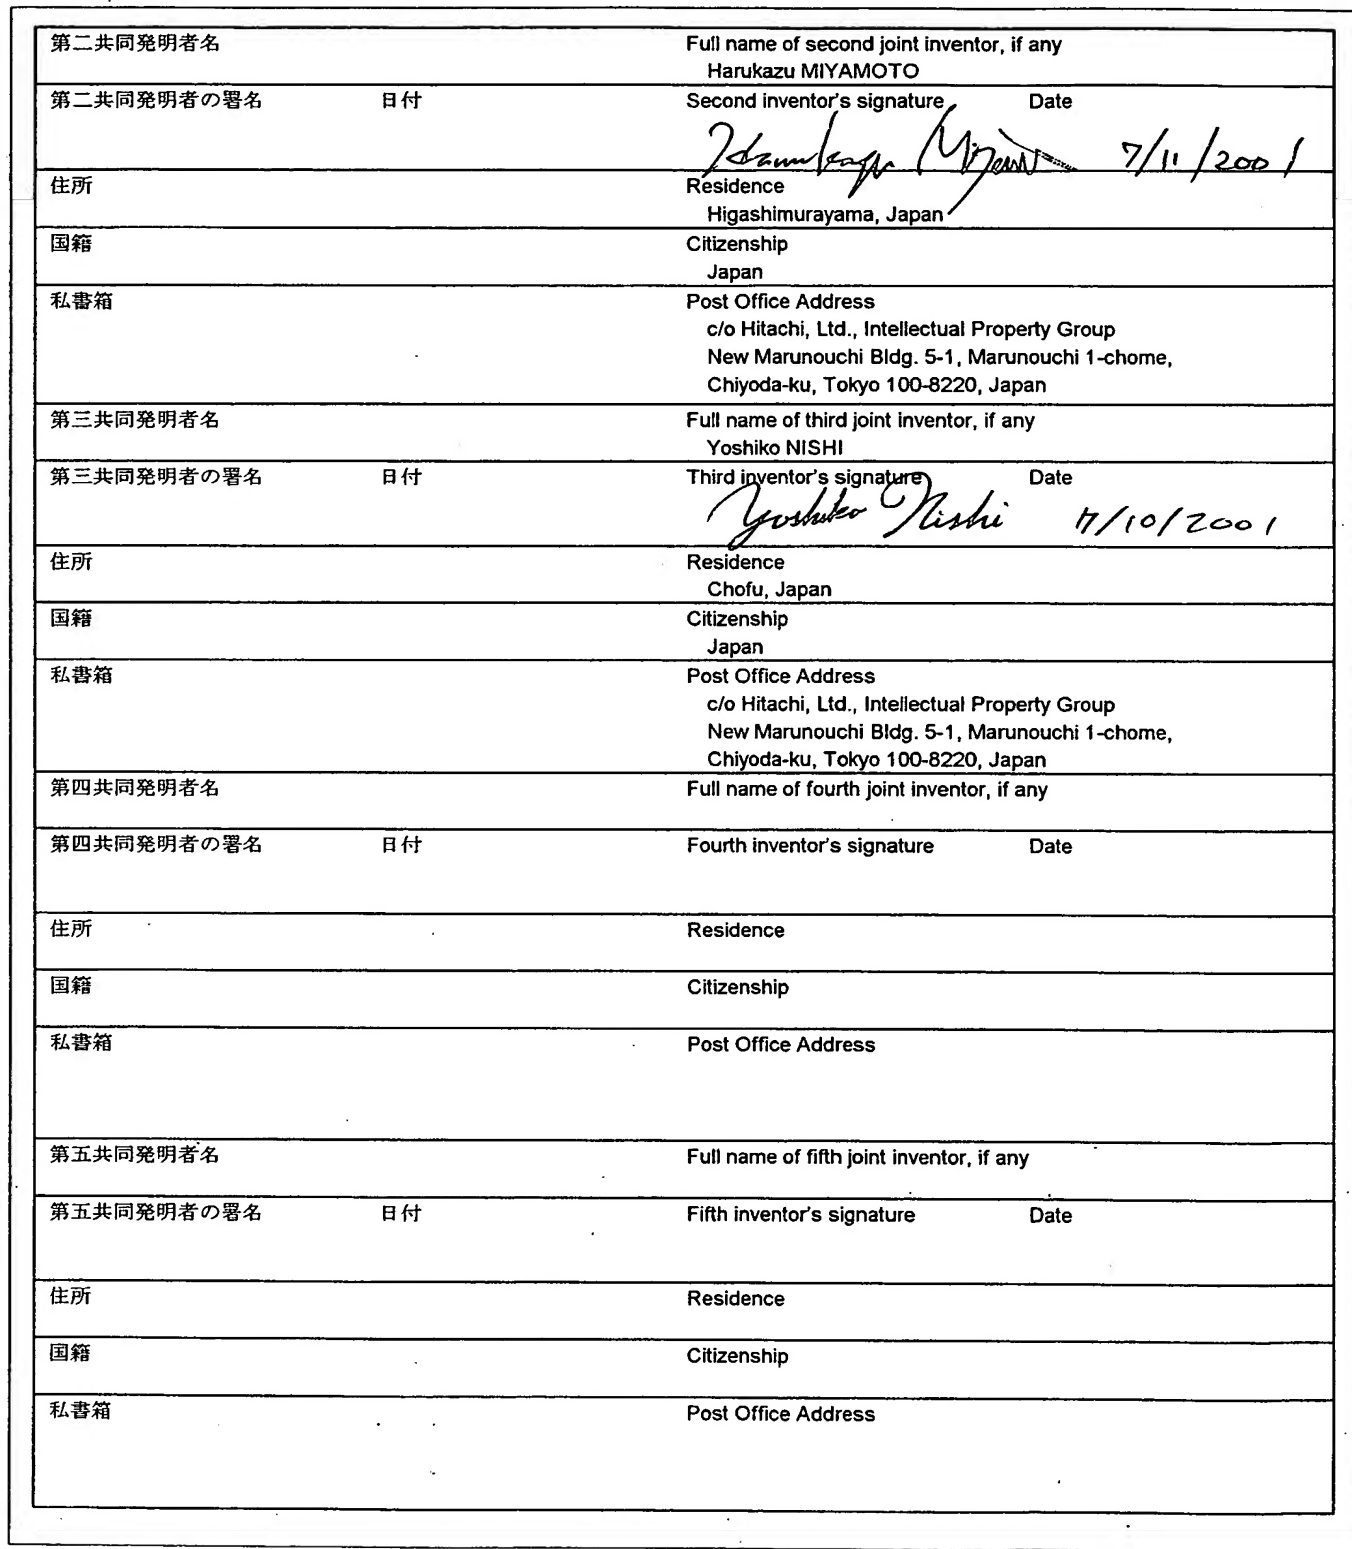 第二共同発明者名 Full name of second joint inventor, if any
Harukazu MIYAMOTO
第二共同発明者の署名 日付 Second inventor's signature Date
7/11/2001
住所 Residence
Higashimurayama, Japan
国籍 Citizenship
Japan
私書箱 Post Office Address
c/o Hitachi, Ltd., Intellectual Property Group
New Marunouchi Bldg. 5-1, Marunouchi 1-chome,
Chiyoda-ku, Tokyo 100-8220, Japan
第三共同発明者名 Full name of third joint inventor, if any
Yoshiko NISHI
第三共同発明者の署名 日付 Third inventor's signature Date
Yoshiko Nishi 7/10/2001
住所 Residence
Chofu, Japan
国籍 Citizenship
Japan
私書箱 Post Office Address
c/o Hitachi, Ltd., Intellectual Property Group
New Marunouchi Bldg. 5-1, Marunouchi 1-chome,
Chiyoda-ku, Tokyo 100-8220, Japan
第四共同発明者名 Full name of fourth joint inventor, if any
第四共同発明者の署名 日付 Fourth inventor's signature Date
住所 Residence
国籍 Citizenship
私書箱 Post Office Address
第五共同発明者名 Full name of fifth joint inventor, if any
第五共同発明者の署名 日付 Fifth inventor's signature Date
住所 Residence
国籍 Citizenship
私書箱 Post Office Address